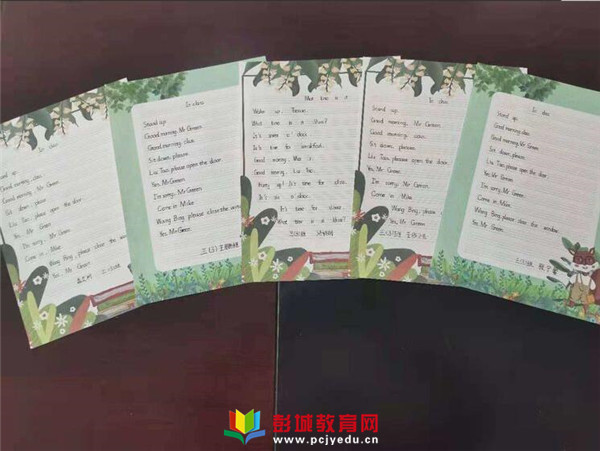 Stand up.
Good morning, Mr Green.
Sit down, please.
please open the door.
Yes, Mr Green.
I'm sorry, Mr Green.
Come in, Mike.
Wang Bing, please close the
Yes, Mr Green.
In class
Stand up.
Good morning, Mr Green.
Good morning, class.
Sit down, please.
Liu Tao, please open the door.
Yes, Mr Green.
I'm sorry, Mr Green.
Come in, Mike.
Wang Bing, please close the window.
Yes, Mr Green.
三(5)王
What time is it
Wake up,
What time is it, Mum?
It's seven o'clock.
It's time for breakfast.
Good morning,
Good morning, Liu Tao.
Hurry up! It's time for class.
It's
It's time for
What time is it
In class
Stand up.
Good morning, Mr Green.
Good morning, class.
Sit down, please.
Liu Tao, please open the door.
Yes, Mr Green.
I'm sorry, Mr Green.
Come in, Mike.
Wang Bing, please
Yes, Mr Green.
In class
Stand up.
Good morning, Mr Green.
Good morning, class.
Sit down, please.
Liu Tao, please open the door.
Yes, Mr Green.
I'm sorry, Mr Green.
Come in, Mike.
Wang Bing, please close the window.
Yes, Mr Green.
彭城教育网
www.pcjyedu.cn